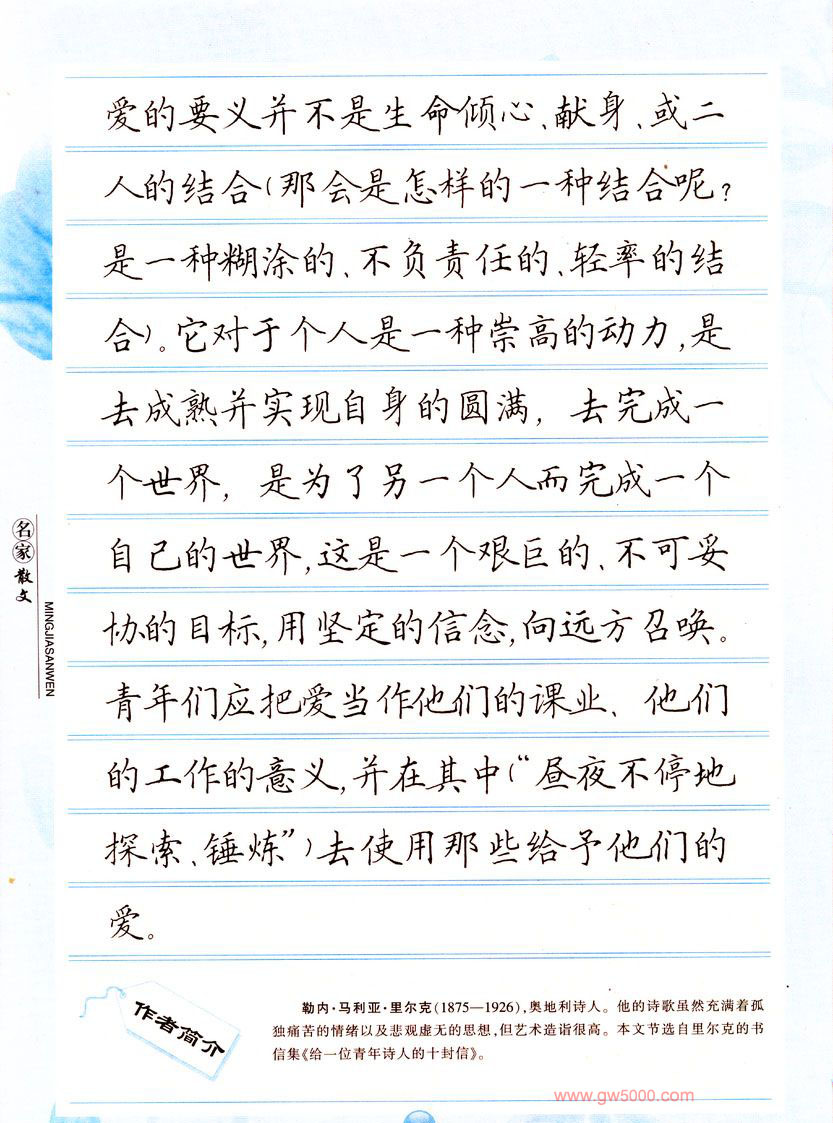 爱的要义并不是生命倾心、献身、或二
人的结合(那会是怎样的一种结合呢?
是一种糊涂的、不负责任的、轻率的结
合)。它对于个人是一种崇高的动力,是
去成熟并实现自身的圆满，去完成一
个世界，是为了另一个人而完成一个
自己的世界,这是一个艰巨的、不可妥
协的目标,用坚定的信念,向远方召唤。
青年们应把爱当作他们的课业、他们
的工作的意义,并在其中(“昼夜不停地
探索、锤炼”)去使用那些给予他们的
爱。
名家散文
MINGJIASANWEN
作者简介
勒内·马利亚·里尔克(1875—1926),奥地利诗人。他的诗歌虽然充满着孤
独痛苦的情绪以及悲观虚无的思想,但艺术造诣很高。本文节选自里尔克的书
信集《给一位青年诗人的十封信》。
www.gw5000.com